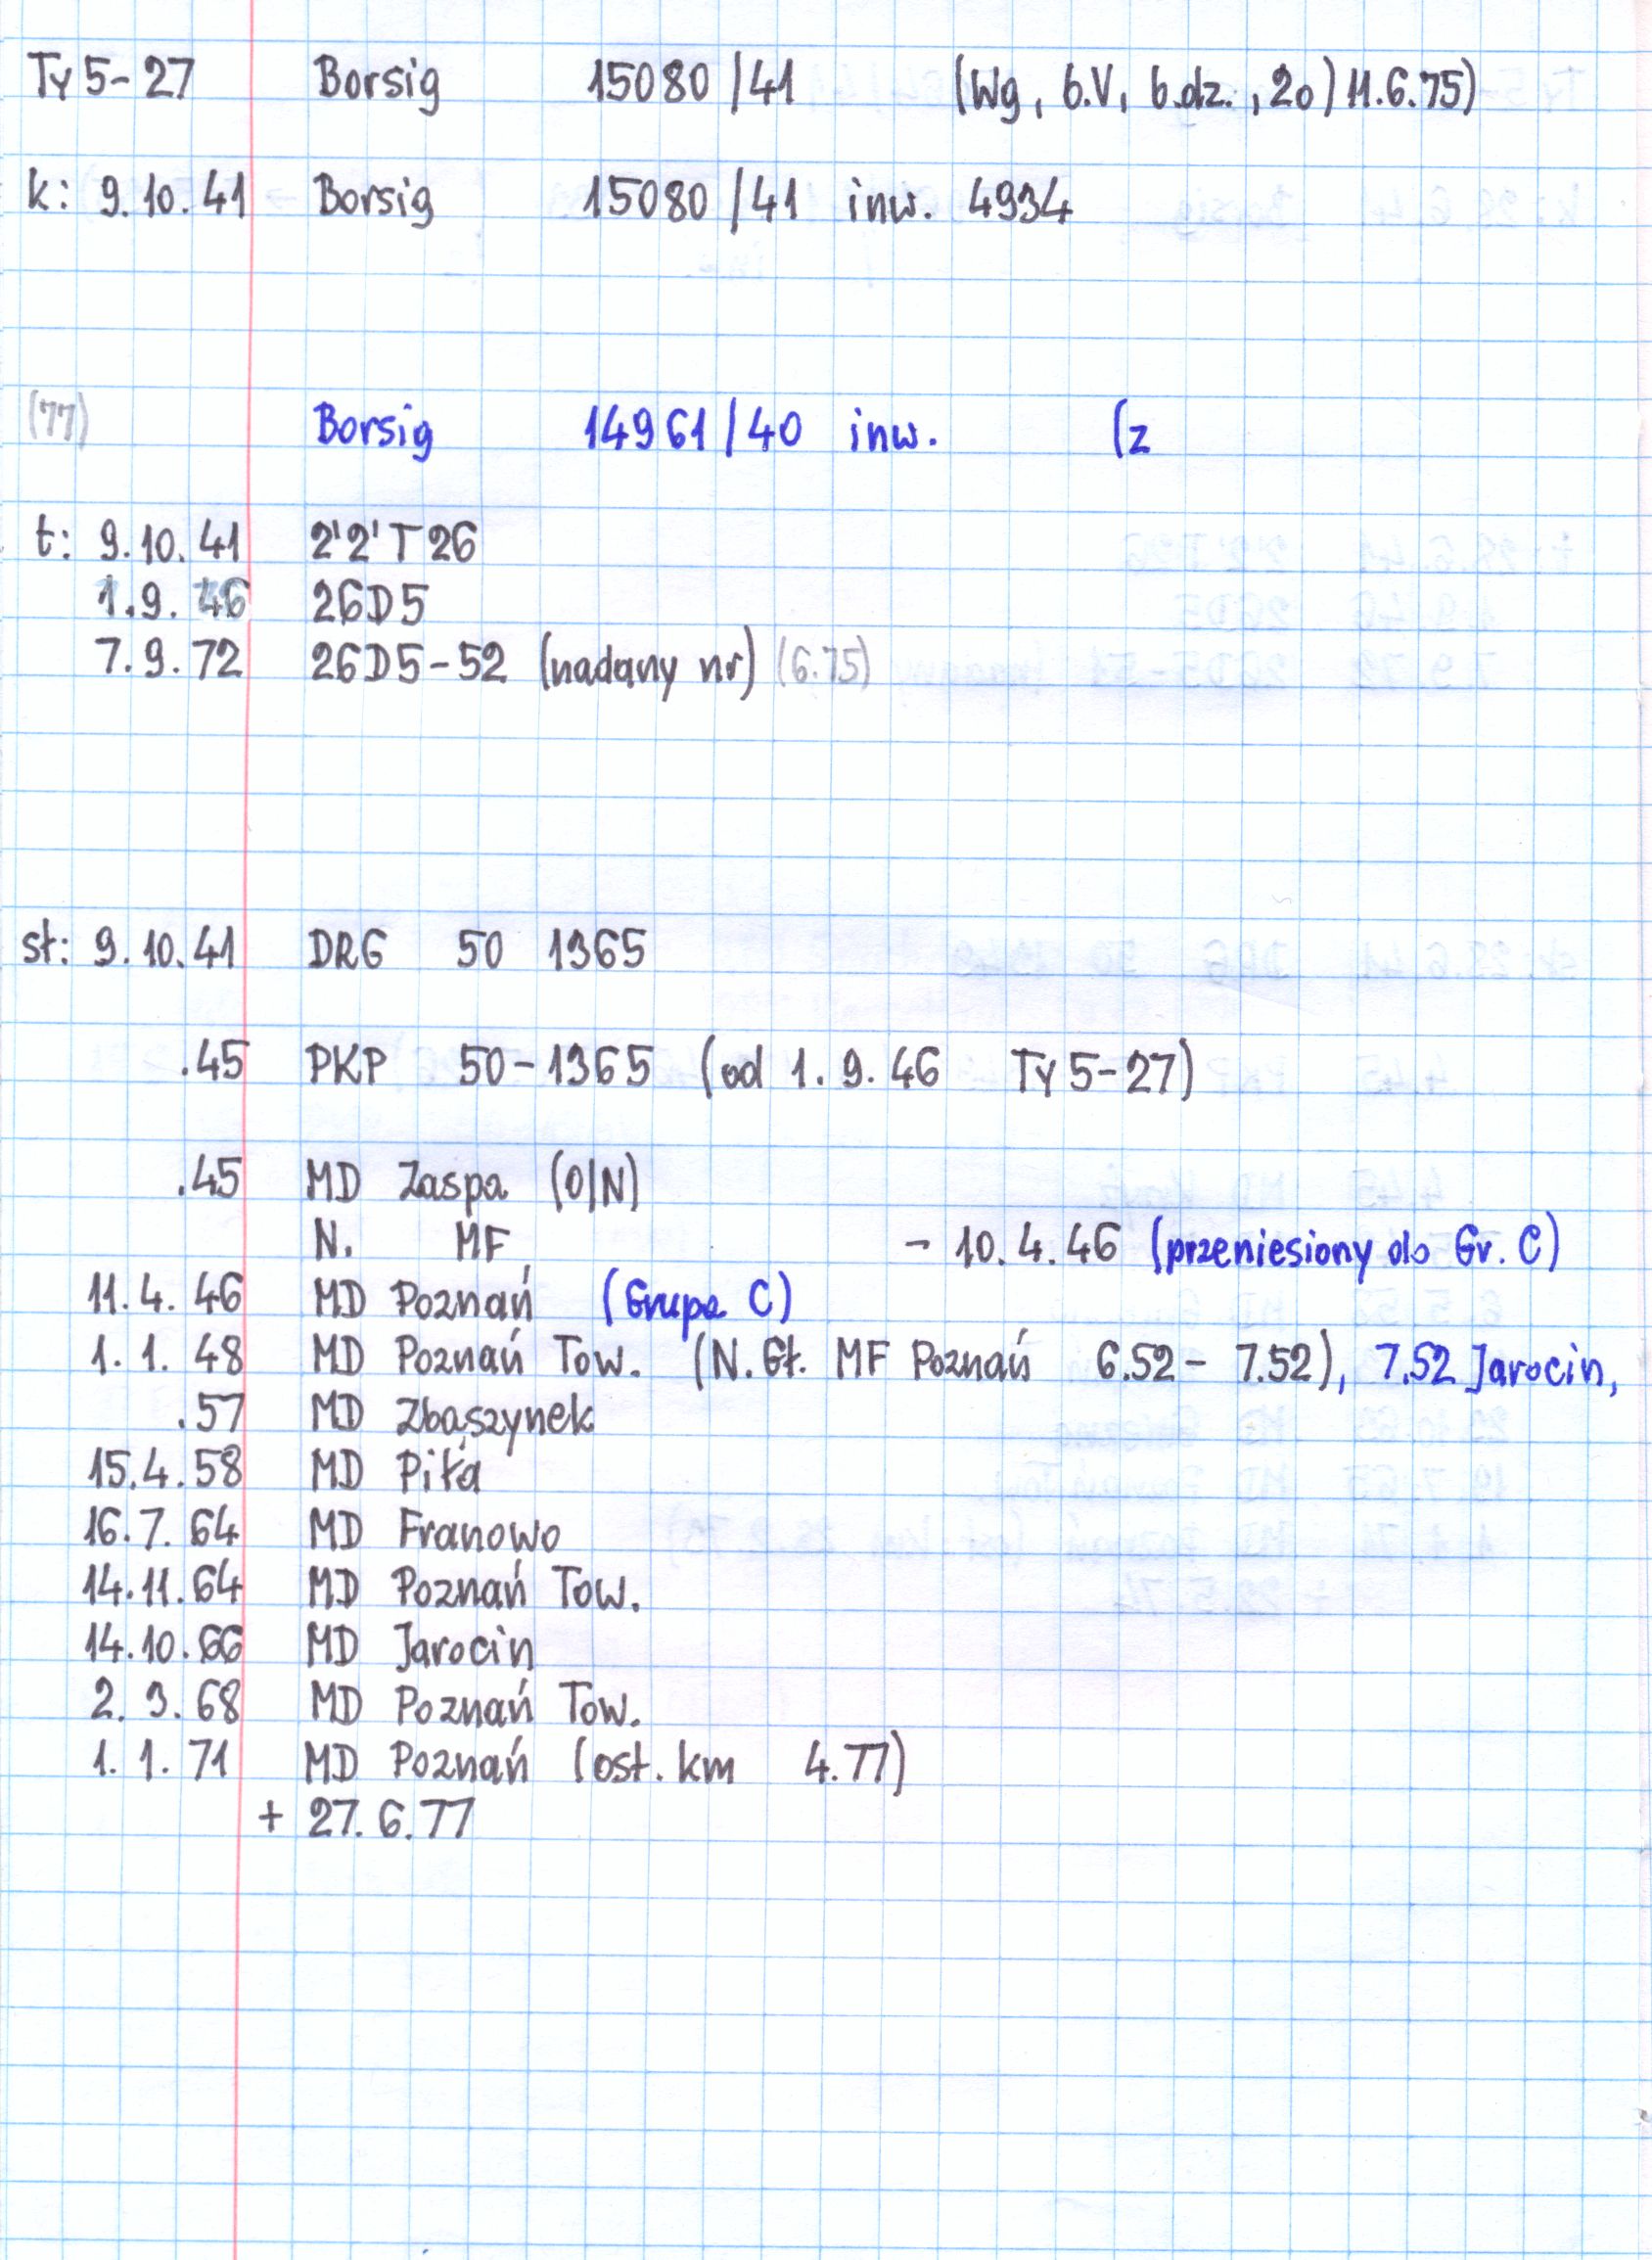 Ty5-27 Borsig 15080/41 (Wg, b.V, b.dz., 2o) 11.6.75)
k: 9.10.41 Borsig 15080/41 inw. 4934
(77) Borsig 14961/40 inw. (z
t: 9.10.41 2'2'T26
1.9.46 26D5
7.9.72 26D5-52 (nadany nr) (6.75)
st: 9.10.41 DRG 50 1365
.45 PKP 50-1365 (od 1.9.46 Ty5-27)
.45 MD Zaspa (O|N)
N. MF - 10.4.46 (przeniesiony do Gr. C)
11.4.46 MD Poznań (Grupa C)
1.1.48 MD Poznań Tow. (N.Gł. MF Poznań 6.52 - 7.52), 7.52 Jarocin,
.57 MD Zbąszynek
15.4.58 MD Piła
16.7.64 MD Franowo
14.11.64 MD Poznań Tow.
14.10.66 MD Jarocin
2.3.68 MD Poznań Tow.
1.1.71 MD Poznań (ost. km 4.77)
+ 27.6.77